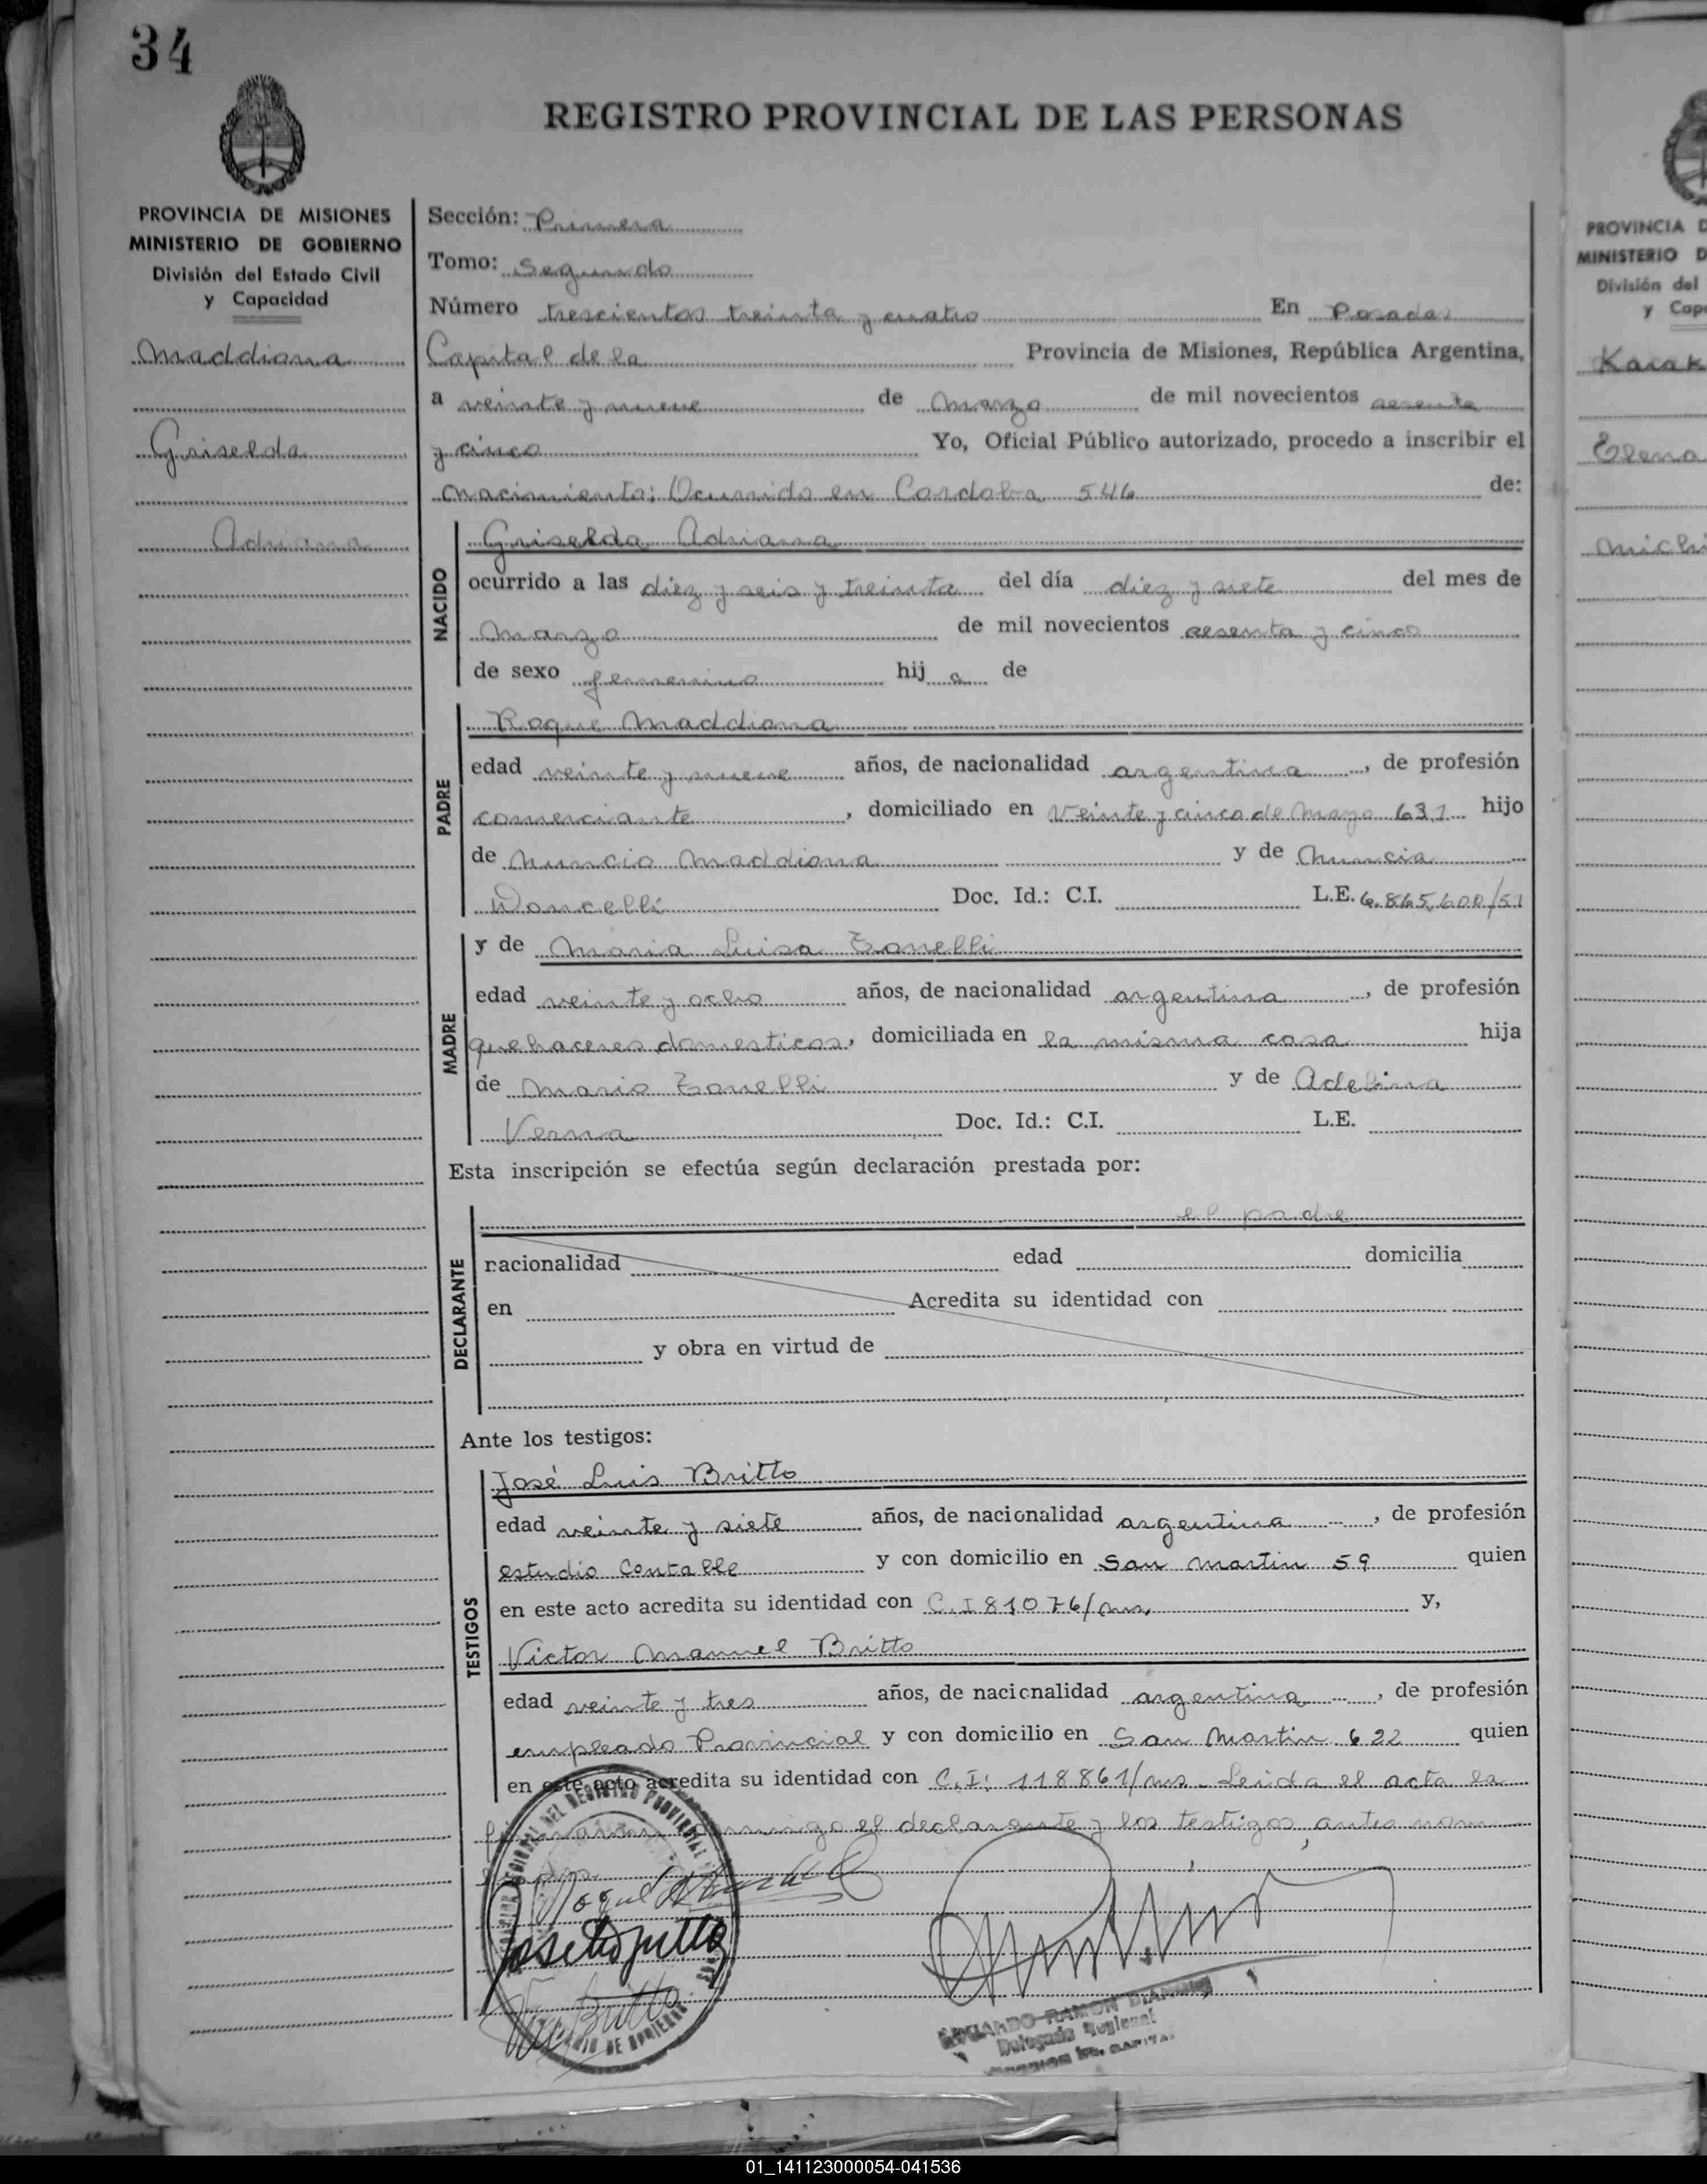 34
REGISTRO PROVINCIAL DE LAS PERSONAS
PROVINCIA DE MISIONES
MINISTERIO DE GOBIERNO
División del Estado Civil
y Capacidad
Maddiona
Griselda
Adriana
Sección: Primera
Tomo: Segundo
Número trescientos treinta y cuatro En Posadas
Capital de la Provincia de Misiones, República Argentina,
a veinte y nueve de Marzo de mil novecientos sesenta
y cinco Yo, Oficial Público autorizado, procedo a inscribir el
Nacimiento: Ocurrido en Cordoba 546 de:
NACIDO
Griselda Adriana
ocurrido a las diez y seis y treinta del día diez y siete del mes de
Marzo de mil novecientos sesenta y cinco
de sexo femenino hij a de
PADRE
Roque Maddiona
edad veinte y nueve años, de nacionalidad argentina, de profesión
comerciante, domiciliado en Veinte y cinco de Mayo 631 hijo
de Nuncio Maddiona y de Nuncia
Doncelli Doc. Id.: C.I. L.E. 6.865.600/51
MADRE
y de Maria Luisa Zonelli
edad veinte y ocho años, de nacionalidad argentina, de profesión
quehaceres domesticos, domiciliada en la misma casa hija
de Mario Zonelli y de Adelina
Verna Doc. Id.: C.I. L.E.
Esta inscripción se efectúa según declaración prestada por:
DECLARANTE
el padre
nacionalidad edad domicilia
en Acredita su identidad con
y obra en virtud de
Ante los testigos:
TESTIGOS
José Luis Britto
edad veinte y siete años, de nacionalidad argentina, de profesión
estudio Contable y con domicilio en San Martin 59 quien
en este acto acredita su identidad con C.I 81076/ms. y,
Victor Manuel Britto
edad veinte y tres años, de nacionalidad argentina, de profesión
empleado Provincial y con domicilio en San Martin 622 quien
en este acto acredita su identidad con C.I: 118861/ms. Leida el acta la
firmaron conmigo el declarante y los testigos antes nom
Britto
RAMON
Delegado Regional
PROVINCIA D
MINISTERIO D
División del
y Cap
Karak
Elena
01_141123000054-041536